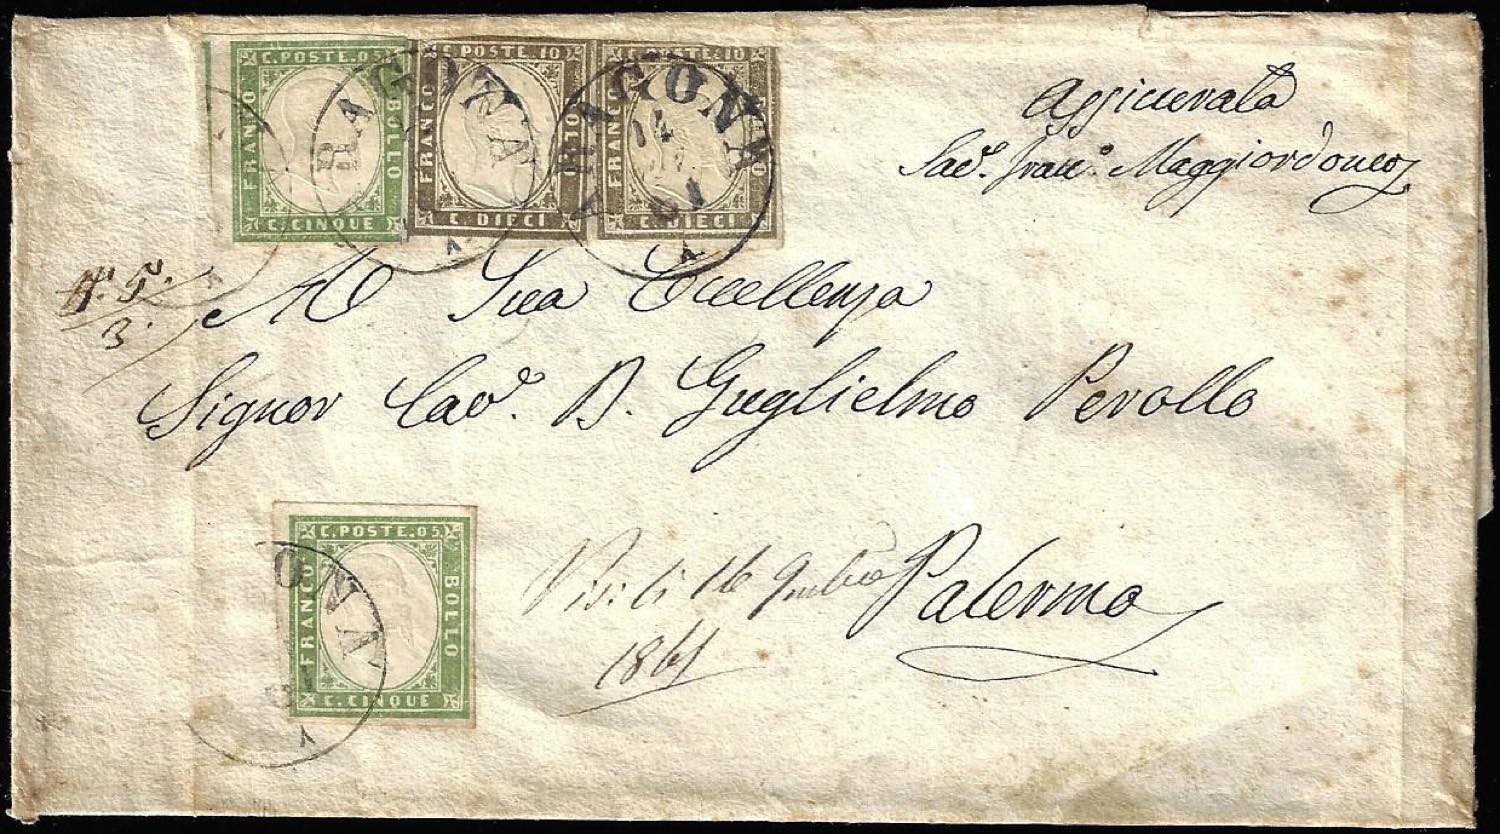 C. POSTE. 05
FRANCO
BOLLO
C. CINQUE
C. POSTE. 10
FRANCO
C. DIECI
C. POSTE. 10
FRANCO
C. DIECI
RAGONA
ARAGONA
14
61
Assicurata
Sad. Franc. Maggiordomo
N. 5.
3.
A Sua Eccellenza
Signor Cav. D. Guglielmo Perollo
C. POSTE. 05
FRANCO
BOLLO
C. CINQUE
ONA
16
Palermo
1861